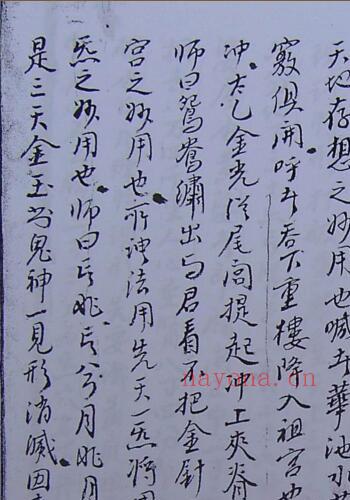 天地存想之妙用也喊斗華池水
竅俱開呼斗吞下重樓降入祖宮
冲太乙金光從尾閭提起冲上夾脊
師曰鴛鴦繡出与君看不把金針
宮之妙用也所謂法用先天一炁將
炁之妙用也師曰
月
是三天金玉
鬼神一見形消滅因
nayona.cn